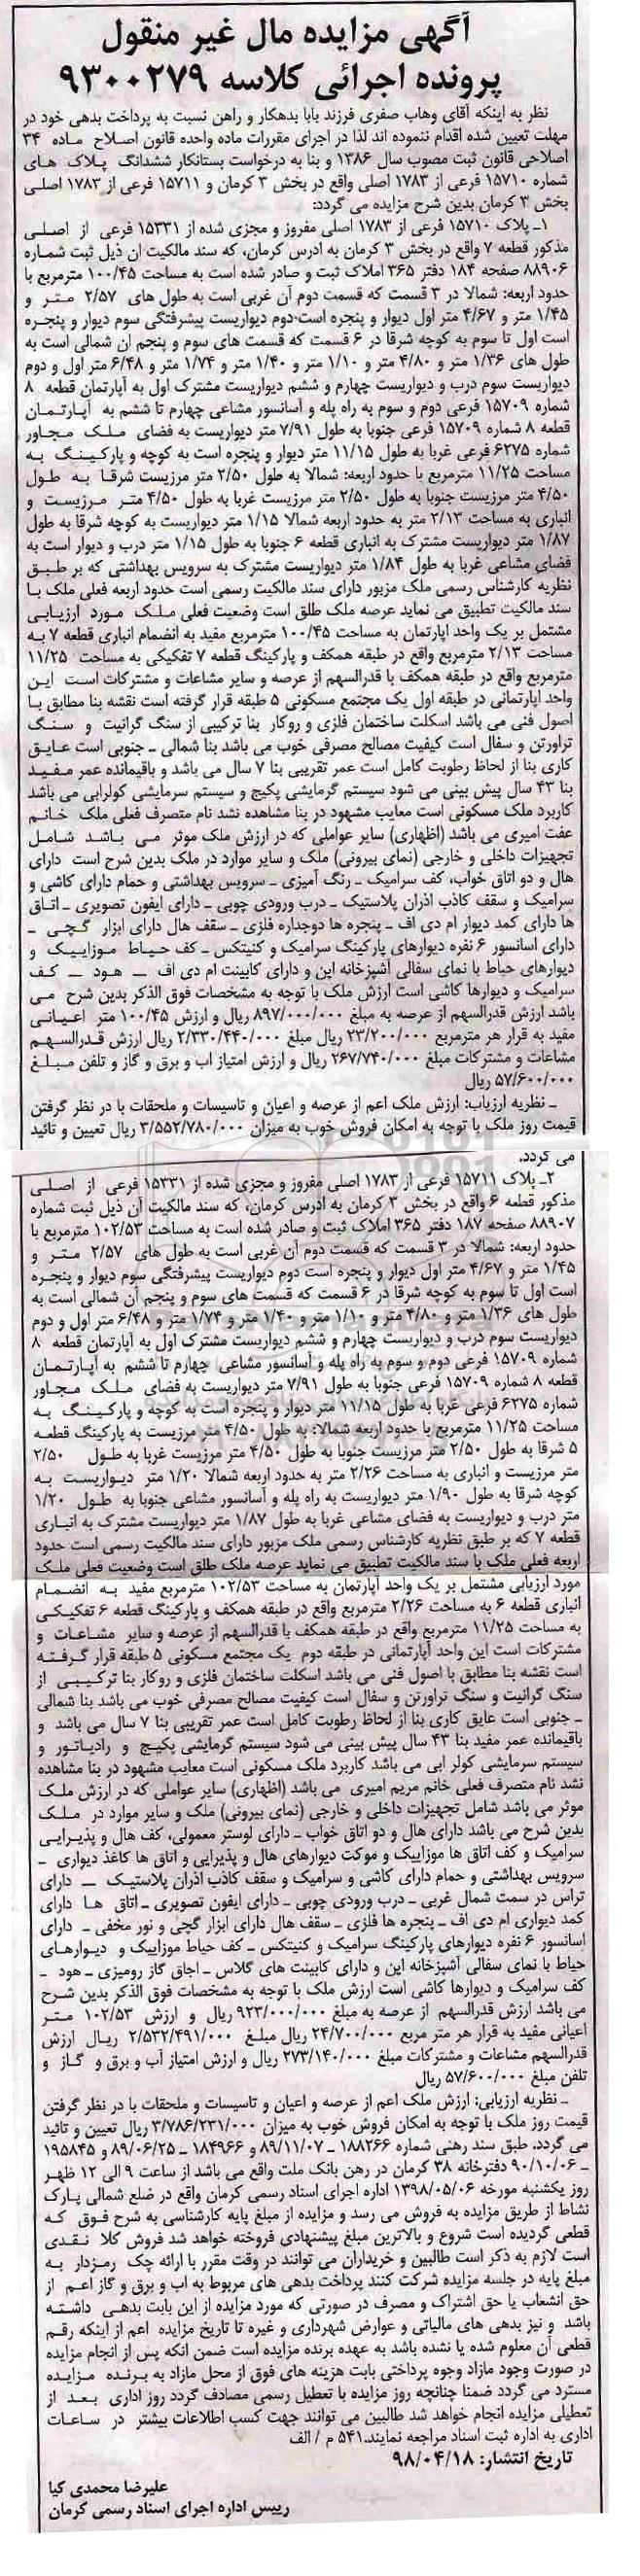 آگهی مزایده مال غیر منقول
پرونده اجرائی کلاسه ۹۳۰۰۲۷۹
نظر به اینکه آقای وهاب صفری فرزند بابا بدهکار و راهن نسبت به پرداخت بدهی خود در
مهلت تعیین شده اقدام ننموده اند لذا در اجرای مقررات ماده واحده قانون اصلاح ماده ۳۴
اصلاحی قانون ثبت مصوب سال ۱۳۸۶ و بنا به درخواست بستانکار ششدانگ پلاک های
شماره ۱۵۷۱۰ فرعی از ۱۷۸۳ اصلی واقع در بخش ۳ کرمان و ۱۵۷۱۱ فرعی از ۱۷۸۳ اصلی
بخش ۳ کرمان بدین شرح مزایده می گردد:
۱ـ پلاک ۱۵۷۱۰ فرعی از ۱۷۸۳ اصلی مفروز و مجزی شده از ۱۵۳۳۱ فرعی از اصلی
مذکور قطعه ۷ واقع در بخش ۳ کرمان به ادرس کرمان، که سند مالکیت ان ذیل ثبت شماره
۸۸۹۰۶ صفحه ۱۸۴ دفتر ۳۶۵ املاک ثبت و صادر شده است به مساحت ۱۰۰/۴۵ مترمربع با
حدود اربعه: شمالا در ۳ قسمت که قسمت دوم آن غربی است به طول های ۲/۵۷ متر و
۱/۴۵ متر و ۴/۶۷ متر اول دیوار و پنجره است-دوم دیواریست پیشرفتگی سوم دیوار و پنجره
است اول تا سوم به کوچه شرقا در ۶ قسمت که قسمت های سوم و پنجم ان شمالی است به
طول های ۱/۳۶ متر و ۴/۸۰ متر و ۱/۱۰ متر و ۱/۴۰ متر و ۱/۷۴ متر و ۶/۴۸ متر اول و دوم
دیواریست سوم درب و دیواریست چهارم و ششم دیواریست مشترک اول به آپارتمان قطعه ۸
شماره ۱۵۷۰۹ فرعی دوم و سوم به راه پله و آسانسور مشاعی چهارم تا ششم به آپارتمان
قطعه ۸ شماره ۱۵۷۰۹ فرعی جنوبا به طول ۷/۹۱ متر دیواریست به فضای ملک مجاور
شماره ۶۲۷۵ فرعی غربا به طول ۱۱/۱۵ متر دیوار و پنجره است به کوچه و پارکینگ به
مساحت ۱۱/۲۵ مترمربع با حدود اربعه: شمالا به طول ۲/۵۰ متر مرزیست شرقا به طول
۴/۵۰ متر مرزیست جنوبا به طول ۲/۵۰ متر مرزیست غربا به طول ۴/۵۰ متر مرزیست و
انباری به مساحت ۲/۱۳ متر به حدود اربعه شمالا ۱/۱۵ متر دیواریست به کوچه شرقا به طول
۱/۸۷ متر دیواریست مشترک به انباری قطعه ۶ جنوبا به طول ۱/۱۵ متر درب و دیوار است به
فضای مشاعی غربا به طول ۱/۸۴ متر دیواریست مشترک به سرویس بهداشتی که بر طبق
نظریه کارشناس رسمی ملک مزبور دارای سند مالکیت رسمی است حدود اربعه فعلی ملک با
سند مالکیت تطبیق می نماید عرصه ملک طلق است وضعیت فعلی ملک مورد ارزیابی
مشتمل بر یک واحد اپارتمان به مساحت ۱۰۰/۴۵ مترمربع مفید به انضمام انباری قطعه ۷ به
مساحت ۲/۱۳ مترمربع واقع در طبقه همکف و پارکینگ قطعه ۷ تفکیکی به مساحت ۱۱/۲۵
مترمربع واقع در طبقه همکف با قدرالسهم از عرصه و سایر مشاعات و مشترکات است این
واحد اپارتمانی در طبقه اول یک مجتمع مسکونی ۵ طبقه قرار گرفته است نقشه بنا مطابق با
اصول فنی می باشد اسکلت ساختمان فلزی و روکار بنا ترکیبی از سنگ گرانیت و سنگ
تراورتن و سفال است کیفیت مصالح مصرفی خوب می باشد بنا شمالی ـ جنوبی است عایق
کاری بنا از لحاظ رطوبت کامل است عمر تقریبی بنا ۷ سال می باشد و باقیمانده عمر مفید
بنا ۴۳ سال پیش بینی می شود سیستم گرمایشی پکیج و سیستم سرمایشی کولرابی می باشد
کاربرد ملک مسکونی است معایب مشهود در بنا مشاهده نشد نام متصرف فعلی ملک خانم
عفت امیری می باشد (اظهاری) سایر عواملی که در ارزش ملک موثر می باشد شامل
تجهیزات داخلی و خارجی (نمای بیرونی) ملک و سایر موارد در ملک بدین شرح است دارای
هال و دو اتاق خواب، کف سرامیک ـ رنگ آمیزی ـ سرویس بهداشتی و حمام دارای کاشی و
سرامیک و سقف کاذب اذران پلاستیک ـ درب ورودی چوبی ـ دارای ایفون تصویری ـ اتاق
ها دارای کمد دیوار ام دی اف ـ پنجره ها دوجداره فلزی ـ سقف هال دارای ابزار گچی ـ
دارای اسانسور ۶ نفره دیوارهای پارکینگ سرامیک و کنیتکس ـ کف حیاط موزاییک و
دیوارهای حیاط با نمای سفالی آشپزخانه اپن و دارای کابینت ام دی اف ـ هود ـ کف
سرامیک و دیوارها کاشی است ارزش ملک با توجه به مشخصات فوق الذکر بدین شرح می
باشد ارزش قدرالسهم از عرصه به مبلغ ۸۹۷/۰۰۰/۰۰۰ ریال و ارزش ۱۰۰/۴۵ متر اعیانی
مفید به قرار هر مترمربع ۲۳/۲۰۰/۰۰۰ ریال مبلغ ۲/۳۳۰/۴۴۰/۰۰۰ ریال ارزش قدرالسهم
مشاعات و مشترکات مبلغ ۲۶۷/۷۴۰/۰۰۰ ریال و ارزش امتیاز اب و برق و گاز و تلفن مبلغ
۵۷/۶۰۰/۰۰۰ ریال
ـ نظریه ارزیاب: ارزش ملک اعم از عرصه و اعیان و تاسیسات و ملحقات با در نظر گرفتن
قیمت روز ملک با توجه به امکان فروش خوب به میزان ۳/۵۵۲/۷۸۰/۰۰۰ ریال تعیین و تائید
می گردد.
۲ـ پلاک ۱۵۷۱۱ فرعی از ۱۷۸۳ اصلی مفروز و مجزی شده از ۱۵۳۳۱ فرعی از اصلی
مذکور قطعه ۶ واقع در بخش ۳ کرمان به ادرس کرمان، که سند مالکیت آن ذیل ثبت شماره
۸۸۹۰۷ صفحه ۱۸۷ دفتر ۳۶۵ املاک ثبت و صادر شده است به مساحت ۱۰۲/۵۳ مترمربع با
حدود اربعه: شمالا در ۳ قسمت که قسمت دوم آن غربی است به طول های ۲/۵۷ متر و
۱/۴۵ متر و ۴/۶۷ متر اول دیوار و پنجره است دوم دیواریست پیشرفتگی سوم دیوار و پنجره
است اول تا سوم به کوچه شرقا در ۶ قسمت که قسمت های سوم و پنجم آن شمالی است به
طول های ۱/۳۶ متر و ۴/۸۰ متر و ۱/۱۰ متر و ۱/۴۰ متر و ۱/۷۴ متر و ۶/۴۸ متر اول و دوم
دیواریست سوم درب و دیواریست چهارم و ششم دیواریست مشترک اول به آپارتمان قطعه ۸
شماره ۱۵۷۰۹ فرعی دوم و سوم به راه پله و آسانسور مشاعی چهارم تا ششم به آپارتمان
قطعه ۸ شماره ۱۵۷۰۹ فرعی جنوبا به طول ۷/۹۱ متر دیواریست به فضای ملک مجاور
شماره ۶۲۷۵ فرعی غربا به طول ۱۱/۱۵ متر دیوار و پنجره است به کوچه و پارکینگ به
مساحت ۱۱/۲۵ مترمربع با حدود اربعه شمالا: به طول ۴/۵۰ متر مرزیست به پارکینگ قطعه
۵ شرقا به طول ۲/۵۰ متر مرزیست جنوبا به طول ۴/۵۰ متر مرزیست غربا به طول ۲/۵۰
متر مرزیست و انباری به مساحت ۲/۲۶ متر به حدود اربعه شمالا ۱/۲۰ متر دیواریست به
کوچه شرقا به طول ۱/۹۰ متر دیواریست به راه پله و آسانسور مشاعی جنوبا به طول ۱/۲۰
متر درب و دیواریست به فضای مشاعی غربا به طول ۱/۸۷ متر دیواریست مشترک به انباری
قطعه ۷ که بر طبق نظریه کارشناس رسمی ملک مزبور دارای سند مالکیت رسمی است حدود
اربعه فعلی ملک با سند مالکیت تطبیق می نماید عرصه ملک طلق است وضعیت فعلی ملک
مورد ارزیابی مشتمل بر یک واحد آپارتمان به مساحت ۱۰۲/۵۳ مترمربع مفید به انضمام
انباری قطعه ۶ به مساحت ۲/۲۶ مترمربع واقع در طبقه همکف و پارکینگ قطعه ۶ تفکیکی
به مساحت ۱۱/۲۵ مترمربع واقع در طبقه همکف با قدرالسهم از عرصه و سایر مشاعات و
مشترکات است این واحد آپارتمانی در طبقه دوم یک مجتمع مسکونی ۵ طبقه قرار گرفته
است نقشه بنا مطابق با اصول فنی می باشد اسکلت ساختمان فلزی و روکار بنا ترکیبی از
سنگ گرانیت و سنگ تراورتن و سفال است کیفیت مصالح مصرفی خوب می باشد بنا شمالی
ـ جنوبی است عایق کاری بنا از لحاظ رطوبت کامل است عمر تقریبی بنا ۷ سال می باشد و
باقیمانده عمر مفید بنا ۴۳ سال پیش بینی می شود سیستم گرمایشی پکیج و رادیاتور و
سیستم سرمایشی کولر ابی می باشد کاربرد ملک مسکونی است معایب مشهود در بنا مشاهده
نشد نام متصرف فعلی خانم مریم امیری می باشد (اظهاری) سایر عواملی که در ارزش ملک
موثر می باشد شامل تجهیزات داخلی و خارجی (نمای بیرونی) ملک و سایر موارد در ملک
بدین شرح می باشد دارای هال و دو اتاق خواب ـ دارای لوستر معمولی، کف هال و پذیرایی
سرامیک و کف اتاق ها موزاییک و موکت دیوارهای هال و پذیرایی و اتاق ها کاغذ دیواری ـ
سرویس بهداشتی و حمام دارای کاشی و سرامیک و سقف کاذب اذران پلاستیک ـ دارای
تراس در سمت شمال غربی ـ درب ورودی چوبی ـ دارای ایفون تصویری ـ اتاق ها دارای
کمد دیواری ام دی اف ـ پنجره ها فلزی ـ سقف هال دارای ابزار گچی و نور مخفی ـ دارای
اسانسور ۶ نفره دیوارهای پارکینگ سرامیک و کنیتکس ـ کف حیاط موزاییک و دیوارهای
حیاط با نمای سفالی آشپزخانه اپن و دارای کابینت های گلاس ـ اجاق گاز رومیزی ـ هود ـ
کف سرامیک و دیوارها کاشی است ارزش ملک با توجه به مشخصات فوق الذکر بدین شرح
می باشد ارزش قدرالسهم از عرصه به مبلغ ۹۲۳/۰۰۰/۰۰۰ ریال و ارزش ۱۰۲/۵۳ متر
اعیانی مفید به قرار هر متر مربع ۲۴/۷۰۰/۰۰۰ ریال مبلغ ۲/۵۳۲/۴۹۱/۰۰۰ ریال ارزش
قدرالسهم مشاعات و مشترکات مبلغ ۲۷۳/۱۴۰/۰۰۰ ریال و ارزش امتیاز آب و برق و گاز و
تلفن مبلغ ۵۷/۶۰۰/۰۰۰ ریال
ـ نظریه ارزیابی: ارزش ملک اعم از عرصه و اعیان و تاسیسات و ملحقات با در نظر گرفتن
قیمت روز ملک با توجه به امکان فروش خوب به میزان ۳/۷۸۶/۲۳۱/۰۰۰ ریال تعیین و تائید
می گردد. طبق سند رهنی شماره ۱۸۸۲۶۶ ـ ۸۹/۱۱/۰۷ و ۱۸۴۹۶۶ ـ ۸۹/۰۶/۲۵ و ۱۹۵۸۴۵
ـ ۹۰/۱۰/۰۶ دفترخانه ۳۸ کرمان در رهن بانک ملت واقع می باشد از ساعت ۹ الی ۱۲ ظهر
روز یکشنبه مورخه ۱۳۹۸/۰۵/۰۶ اداره اجرای اسناد رسمی کرمان واقع در ضلع شمالی پارک
نشاط از طریق مزایده به فروش می رسد و مزایده از مبلغ پایه کارشناسی به شرح فوق که
قطعی گردیده است شروع و بالاترین مبلغ پیشنهادی فروخته خواهد شد فروش کلا نقدی
است لازم به ذکر است طالبین و خریداران می توانند در وقت مقرر با ارائه چک رمزدار به
مبلغ پایه در جلسه مزایده شرکت کنند پرداخت بدهی های مربوط به اب و برق و گاز اعم از
حق انشعاب یا حق اشتراک و مصرف در صورتی که مورد مزایده از این بابت بدهی داشته
باشد و نیز بدهی های مالیاتی و عوارض شهرداری و غیره تا تاریخ مزایده اعم از اینکه رقم
قطعی آن معلوم شده یا نشده باشد به عهده برنده مزایده است ضمن انکه پس از انجام مزایده
در صورت وجود مازاد وجوه پرداختی بابت هزینه های فوق از محل مازاد به برنده مزایده
مسترد می گردد ضمنا چنانچه روز مزایده با تعطیل رسمی مصادف گردد روز اداری بعد از
تعطیلی مزایده انجام خواهد شد طالبین می توانند جهت کسب اطلاعات بیشتر در ساعات
اداری به اداره ثبت اسناد مراجعه نمایند. ۵۴۱ م / الف
تاریخ انتشار: ۹۸/۰۴/۱۸
علیرضا محمدی کیا
رییس اداره اجرای اسناد رسمی کرمان